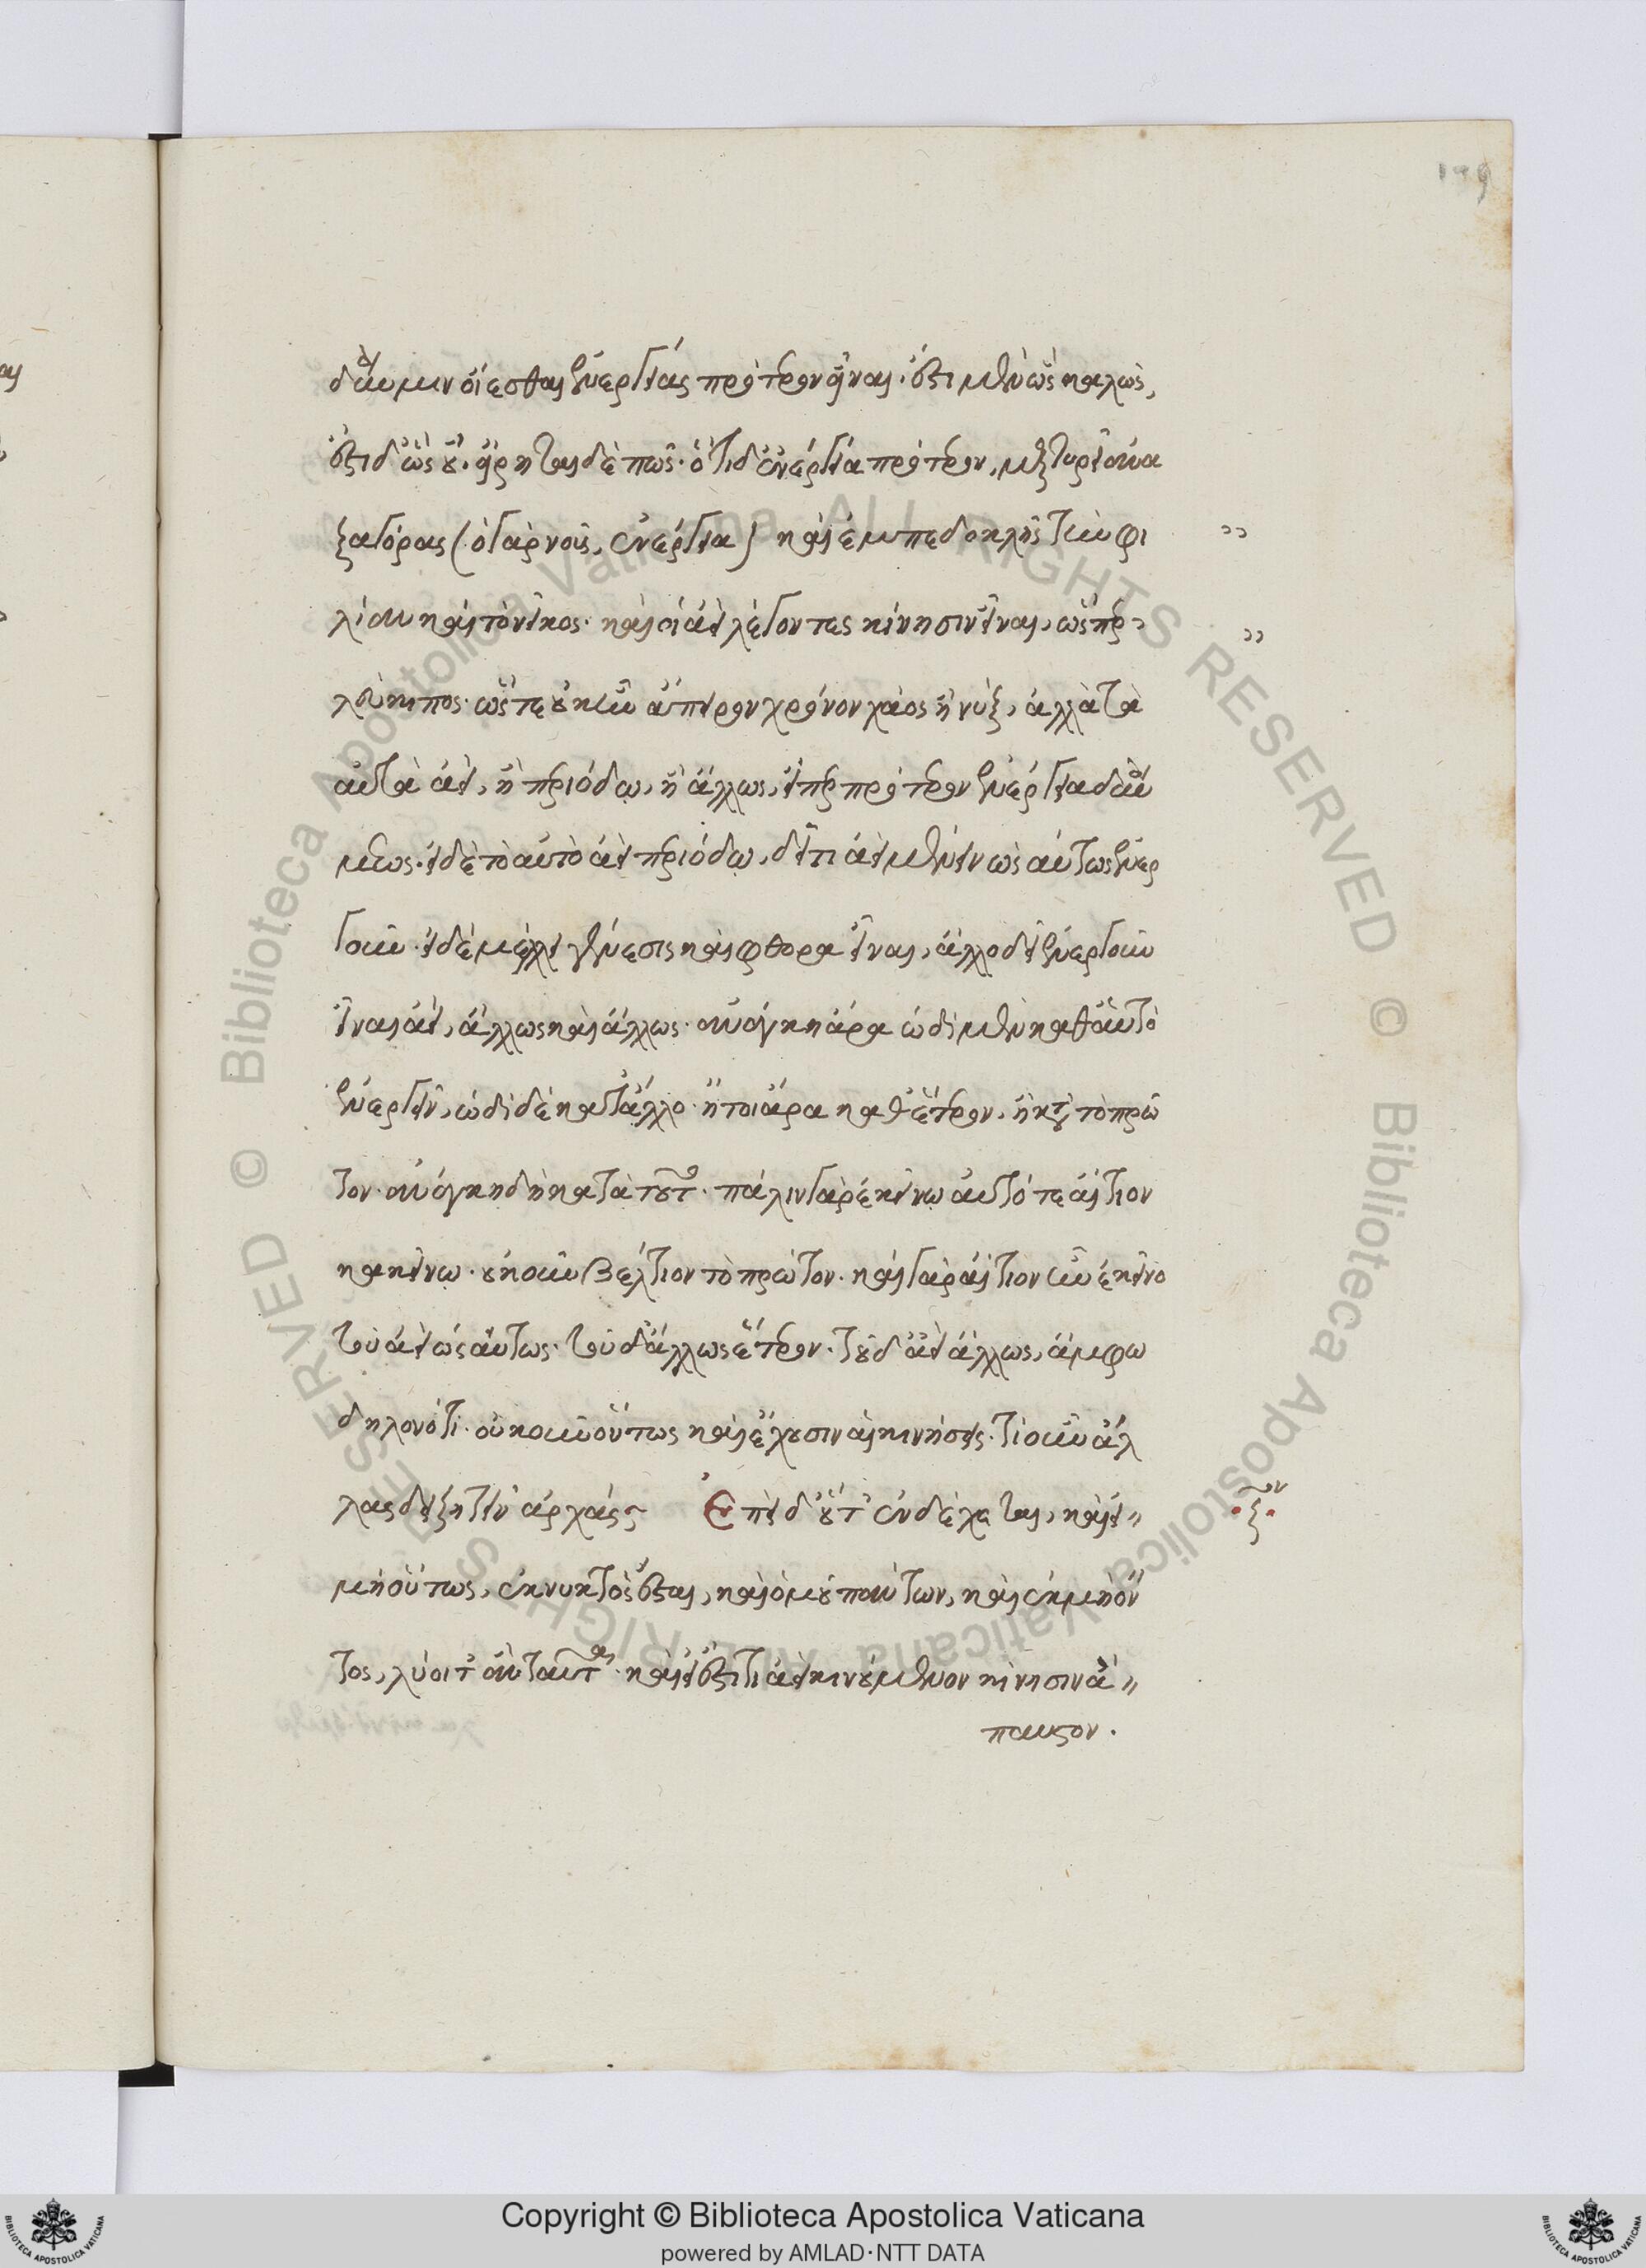 199
δύναμιν οἴεσθαι ἐνεργείας πρότερον εἶναι· ἔστι μὲν ὡς καλῶς,
ἔστι δ' ὡς οὔ· εἴρηται δὲ πῶς· ὅτι δ' ἐνέργεια πρότερον, μαρτυρεῖ ἀνα
ξαγόρας (ὁ γὰρ νοῦς, ἐνέργεια) καὶ ἐμπεδοκλῆς τὴν φι
λίαν καὶ τὸ νεῖκος· καὶ οἱ ἀεὶ λέγοντες κίνησιν εἶναι, ὥσπερ
λεύκιπος· ὥστε οὐκ ἦν ἄπειρον χρόνον χάος ἢ νύξ, ἀλλὰ τὰ
αὐτὰ ἀεὶ, ἢ περιόδῳ, ἢ ἄλλως, εἴπερ πρότερον ἐνέργεια δυνά
μεως· εἰ δὲ τὸ αὐτὸ ἀεὶ περιόδῳ, δεῖ τι ἀεὶ μένειν ὡς αὕτως ἐνερ
γοῦν· εἰ δὲ μέλλει γένεσις καὶ φθορὰ εἶναι, ἄλλο δεῖ ἐνεργοῦν
εἶναι ἀεὶ, ἄλλως καὶ ἄλλως· ἀνάγκη ἄρα ὡδὶ μὲν καθ' αὑτὸ
ἐνεργεῖν, ὡδὶ δὲ κατ' ἄλλο· ἤτοι ἄρα καθ' ἕτερον, ἢ κατὰ τὸ πρῶ
τον· ἀνάγκη δὴ κατὰ τοῦτο· πάλιν γὰρ ἐκείνῳ αὐτό τε αἴτιον
κακείνῳ· οὐκοῦν βέλτιον τὸ πρῶτον· καὶ γὰρ αἴτιον ἦν ἐκεῖνο
τοῦ ἀεὶ ὡσαύτως· τοῦ δ' ἄλλως ἕτερον· τοῦ δ' ἀεὶ ἄλλως, ἄμφω
δηλονότι· οὐκοῦν οὕτως καὶ ἔχουσιν αἱ κινήσεις· τί οὖν ἄλ
λας δεῖ ζητεῖν ἀρχάς Ἐπεὶ δ' οὕτ' ἐνδέχεται, καὶ εἰ
μὴ οὕτως, ἐκ νυκτὸς ἔσται, καὶ ὁμοῦ πάντων, καὶ ἐκ μὴ ὄν
τος, λύοιτ' ἂν ταῦτα· καὶ εἰ ἔστι τι ἀεὶ κινούμενον κίνησιν ἄ
παυστον.